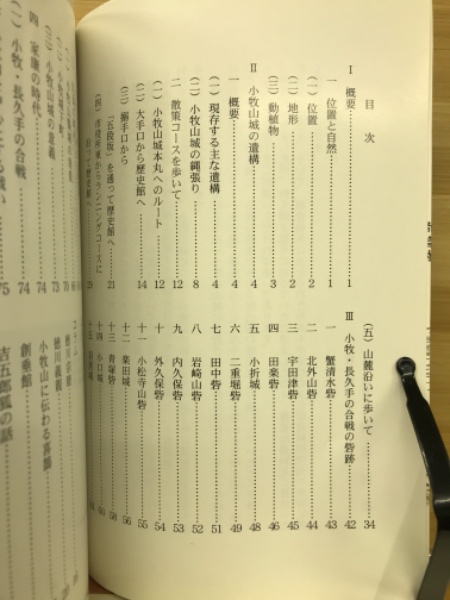 目次
Ⅰ 概要……1
一 位置と自然……1
(一) 位置……1
(二) 地形……2
(三) 動植物……3
Ⅱ 小牧山城の遺構……4
一 概要……4
(一) 現存する主な遺構……4
(二) 小牧山城の縄張り……8
二 散策コースを歩いて……12
(一) 小牧山城本丸へのルート……12
(二) 大手口から歴史館へ……14
(三) 搦手口から
「五段坂」を通って歴史館へ……21
(四) 市役所東からランニングコースに
沿って歴史館へ……29
(五) 山麓沿いに歩いて……34
Ⅲ 小牧・長久手の合戦の砦跡……42
一 蟹清水砦……43
二 北外山砦……44
三 宇田津砦……45
四 田楽砦……46
五 小折城……48
六 二重堀砦……49
七 田中砦……51
八 岩崎山砦……52
九 内久保砦……53
十 外久保砦……54
十一 小松寺山砦……55
十二 楽田城……56
十三 青塚砦……58
十四 小口城……60
十五
(三) 小牧山城の意義……73
四 家康の時代……74
(一) 小牧・長久手の合戦……74
75
コラム
徳川義親
小牧山に伝わる喜
創垂館
吉五郎狐の話